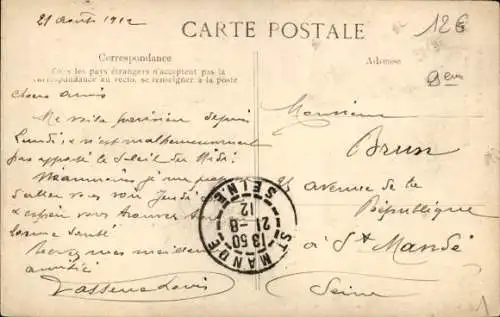 21 août 1912
CARTE POSTALE
12€
Correspondance
Tous les pays étrangers n'acceptent pas la
correspondance au verso, se renseigner à la poste
Adresse
Chers amis
Me voilà parisien depuis
Lundi, n'est malheureusement
pas apporté le Soleil du Midi
Néanmoins je me
d'aller vous voir Jeudi
espoir vous trouver
bonne Santé
mes meilleures
amitiés
Louis
Monsieur
Brun
25 avenue de la
République
à St Mandé
Seine
ST MANDÉ
13 50
21 -8
12
SEINE
1